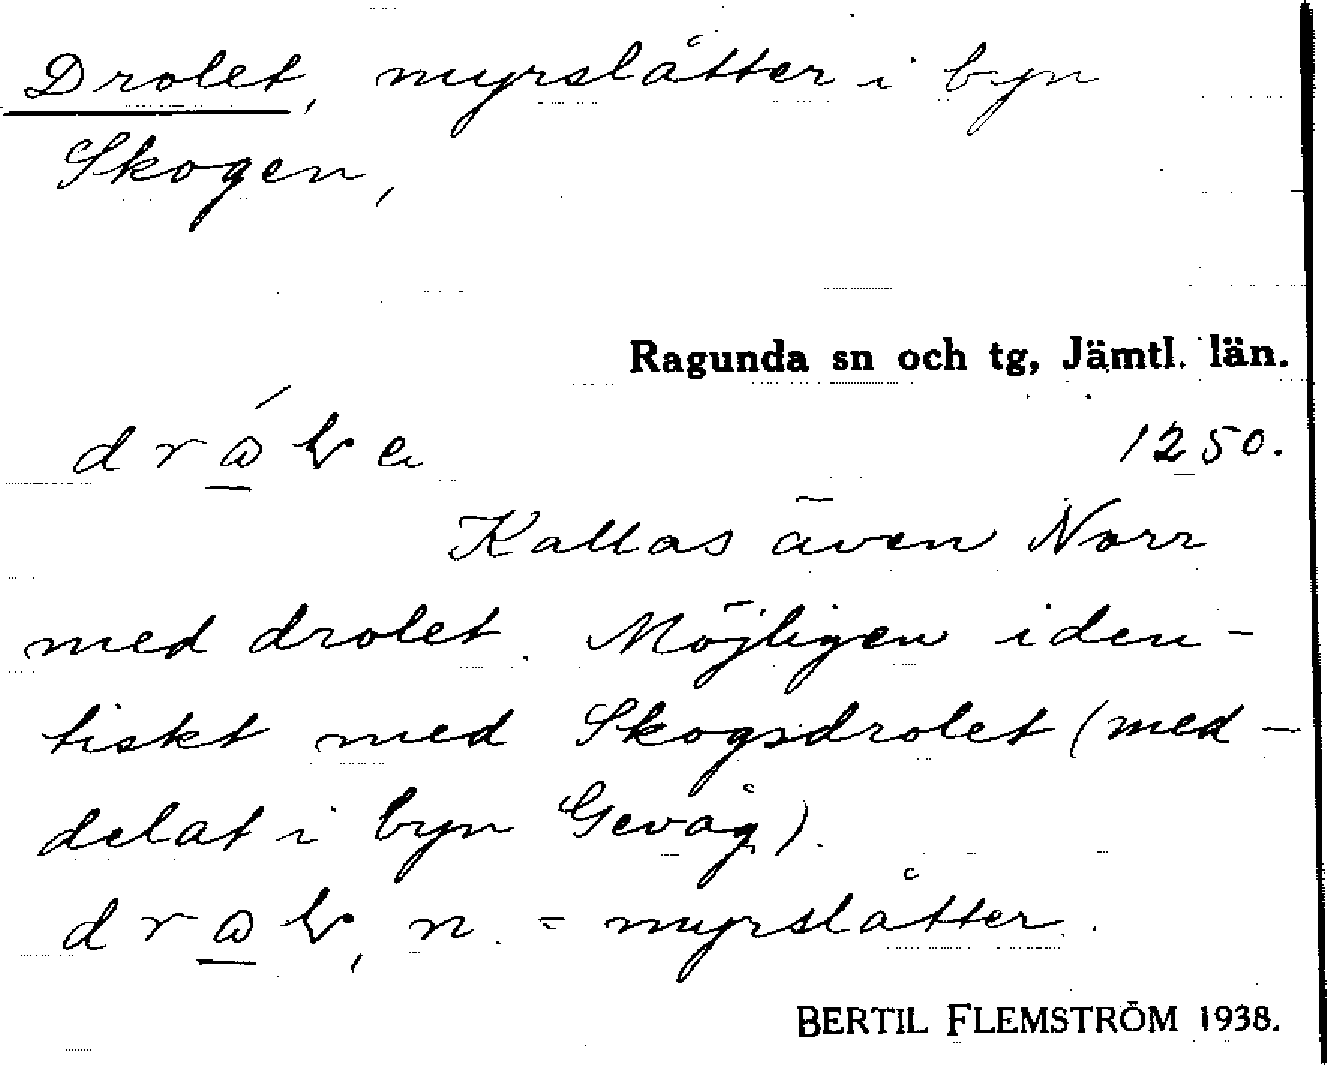 Drolet, myrslåtter i byn
Skogen,
Ragunda sn och tg, Jämtl. län.
1250.
Kallas även Norr
med drolet. Möjligen iden-
tiskt med Skogsdrolet (med-
delat i byn Gevåg).
n. = myrslåtter.
BERTIL FLEMSTRÖM 1938.